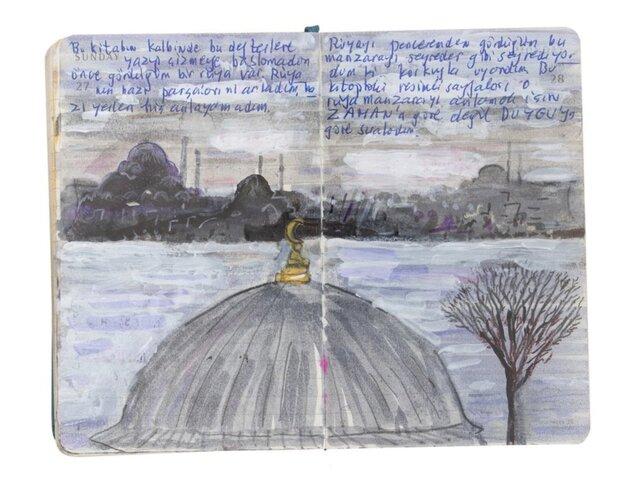 Bu kitabın kalbinde bu defterlere
SUNDAY yazıp çizmeye başlamadan
önce gördüğüm bir rüya var. Rüya
27 nın bazı parçalarını anladım, ba
zı yerleri hiç anlayamadım.
Rüyayı penceremden gördüğüm bu
manzarayı seyreder gibi seyrediyor
dum ki korkuyla uyandım. Bu
28
kitaptaki resimli sayfaları o
rüya manzarayı anlamak için
ZAMAN'a göre değil DUYGU'ya
göre sıraladım.